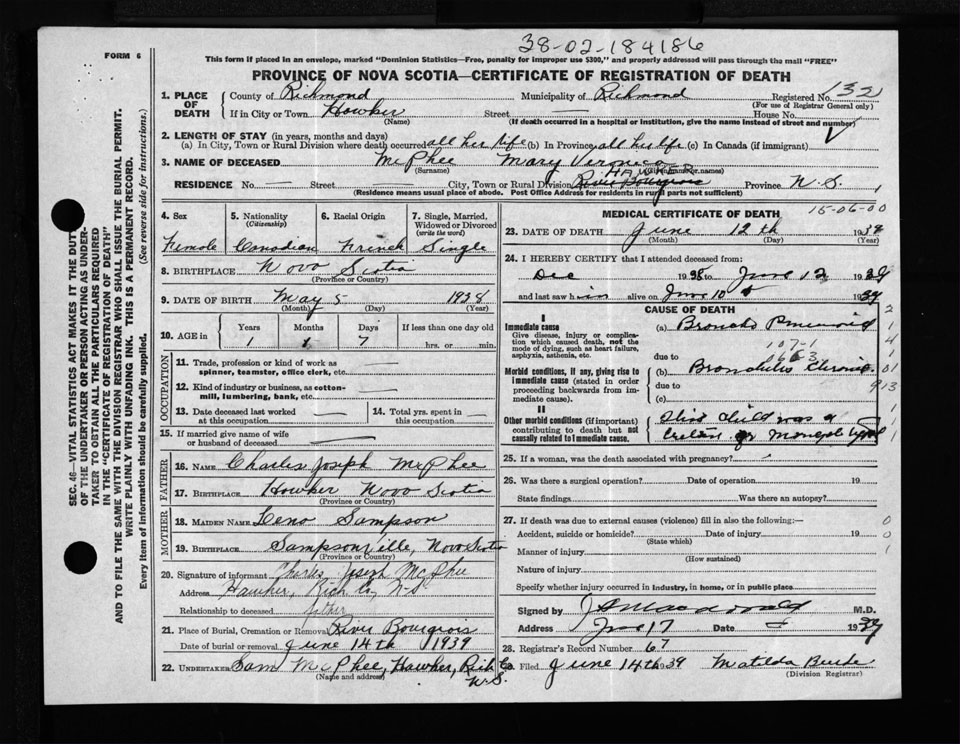 38-02-184186
FORM 6
This form if placed in an envelope, marked "Dominion Statistics—Free, penalty for improper use $300," and properly addressed will pass through the mail "FREE"
PROVINCE OF NOVA SCOTIA—CERTIFICATE OF REGISTRATION OF DEATH
SEC. 46—VITAL STATISTICS ACT MAKES IT THE DUTY
OF THE UNDERTAKER OR PERSON ACTING AS UNDER-
TAKER TO OBTAIN ALL THE PARTICULARS REQUIRED
IN THE "CERTIFICATE OF REGISTRATION OF DEATH"
AND TO FILE THE SAME WITH THE DIVISION REGISTRAR WHO SHALL ISSUE THE BURIAL PERMIT.
WRITE PLAINLY WITH UNFADING INK. THIS IS A PERMANENT RECORD.
Every item of information should be carefully supplied. (See reverse side for instructions.)
1. PLACE OF DEATH
County of Richmond Municipality of Richmond Registered No. 132
(For use of Registrar General only)
If in City or Town Hawker Street — House No.
(Name) (If death occurred in a hospital or institution, give the name instead of street and number)
2. LENGTH OF STAY (in years, months and days)
(a) In City, Town or Rural Division where death occurred all her life (b) In Province all her life (c) In Canada (if immigrant)
3. NAME OF DECEASED McPhee Mary Veronica
(Surname) (Given or names)
RESIDENCE No. — Street — City, Town or Rural Division River Bourgeois Province N.S.
(Residence means usual place of abode. Post Office Address for residents in rural parts not sufficient)
4. Sex
Female
5. Nationality
(Citizenship)
Canadian
6. Racial Origin
French
7. Single, Married, Widowed or Divorced
(write the word)
Single
8. BIRTHPLACE Nova Scotia
(Province or Country)
9. DATE OF BIRTH May 5 1938
(Month) (Day) (Year)
10. AGE in
Years Months Days If less than one day old
1 1 7 hrs. or min.
OCCUPATION
11. Trade, profession or kind of work as
spinner, teamster, office clerk, etc. —
12. Kind of industry or business, as cotton-
mill, lumbering, bank, etc. —
13. Date deceased last worked
at this occupation —
14. Total yrs. spent in
this occupation —
15. If married give name of wife
or husband of deceased —
FATHER
16. NAME Charles Joseph McPhee
17. BIRTHPLACE Hawker Nova Scotia
(Province or Country)
MOTHER
18. MAIDEN NAME Lena Sampson
19. BIRTHPLACE Sampsonville, Nova Scotia
(Province or Country)
20. Signature of informant Charles Joseph McPhee
Address Hawker, Rich Co, N.S
Relationship to deceased father
21. Place of Burial, Cremation or Removal River Bourgeois
Date of burial or removal June 14th 1939
22. UNDERTAKER Sam McPhee, Hawker, Rich Co
N.S.
(Name and address)
MEDICAL CERTIFICATE OF DEATH
15-06-00
23. DATE OF DEATH June 12th 1939
(Month) (Day) (Year)
24. I HEREBY CERTIFY that I attended deceased from:
Dec 1938 to June 12 1939
and last saw him alive on June 10 1939
CAUSE OF DEATH
I
Immediate cause
Give disease, injury or complica-
tion which caused death, not the
mode of dying, such as heart failure,
asphyxia, asthenia, etc.
(a) Broncho Pneumonia
107-1
due to
Morbid conditions, if any, giving rise to
immediate cause (stated in order
proceeding backwards from im-
mediate cause).
(b) Bronchitis Chronic
due to
(c)
II
Other morbid conditions (if important)
contributing to death but not
causally related to immediate cause.
This child was a
Cretan or mongol type
25. If a woman, was the death associated with pregnancy?
26. Was there a surgical operation? Date of operation 19
State findings Was there an autopsy?
27. If death was due to external causes (violence) fill in also the following:
Accident, suicide or homicide? Date of injury 19
(State which)
Manner of injury
(How sustained)
Nature of injury
Specify whether injury occurred in industry, in home, or in public place
Signed by J A Macdonald M.D.
Address June 17 Date 1939
28. Registrar's Record Number 67
Filed June 14th 1939 Matilda Burke
(Division Registrar)